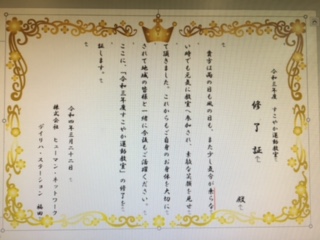 令和三年度 すこやか運動教室
修了証
殿
貴方は雨の日も風の日も、また少し気分が乗らな
い時でも元気に教室へ参加され、素敵な笑顔を見せ
て頂きました。これからもご自身のお身体を大切に
されて地域の皆様と一緒に今後もご活躍ください。
ここに、「令和三年度すこやか運動教室」の修了を
証します。
令和四年三月二十二日
株式会社 ヒューマン・ネットワーク
デイリハ・ステーション 福田